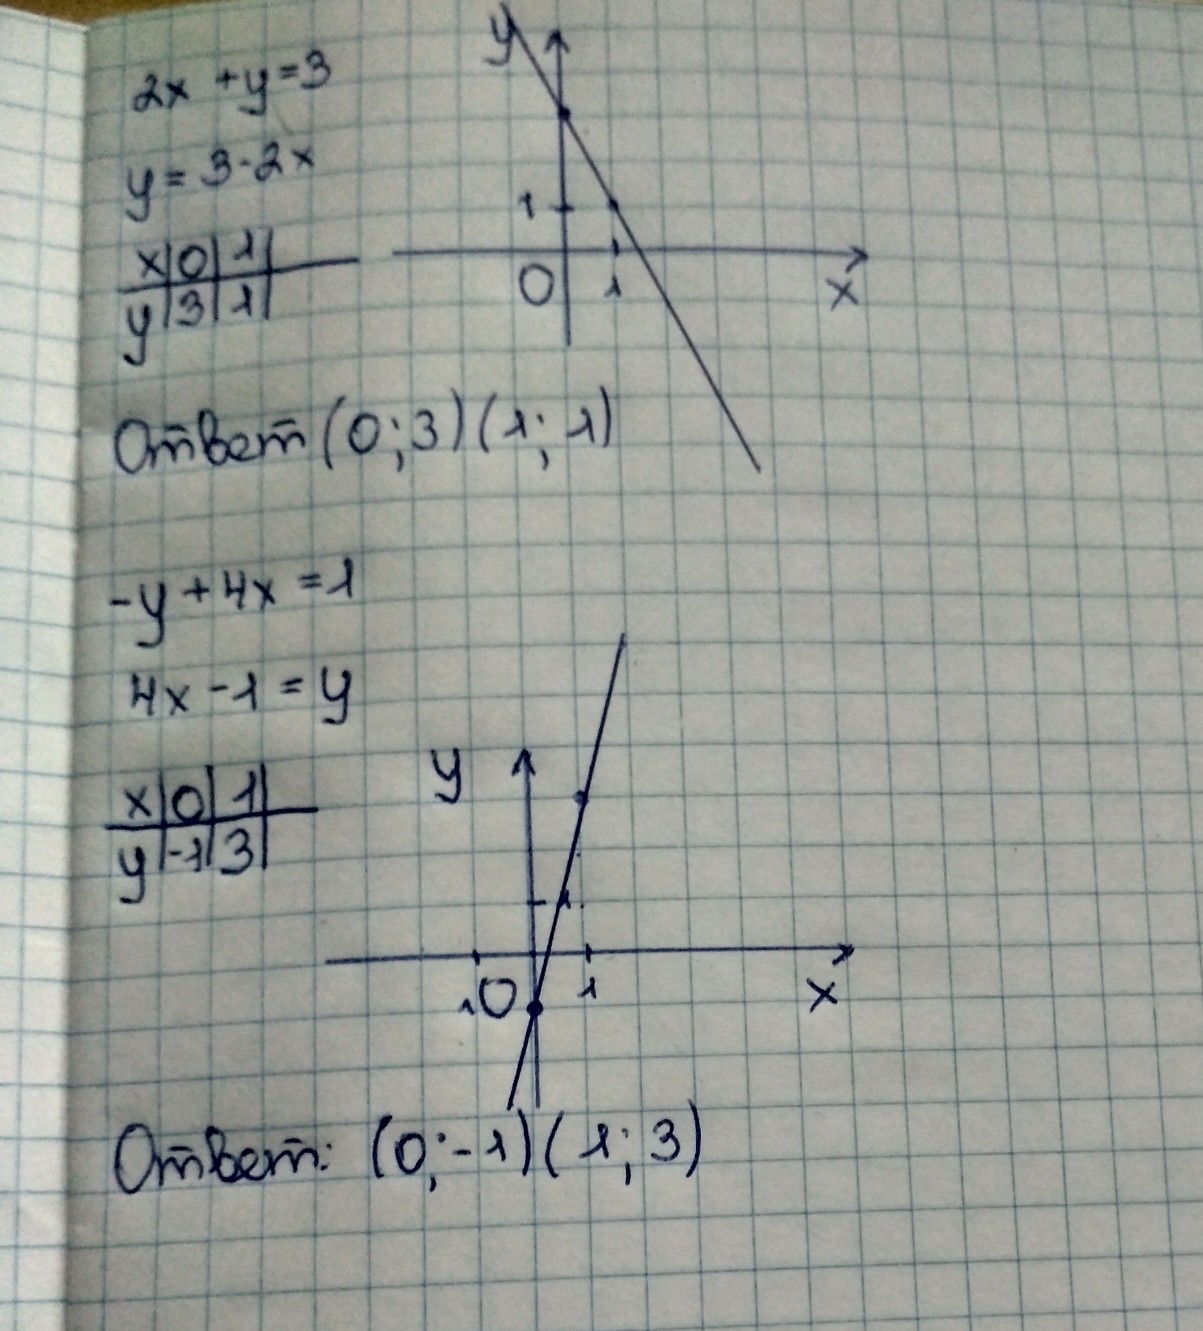 2x + y = 3
y = 3 - 2x
x | 0 | 1 |
y | 3 | 1 |
y
1
0 1 x
Ответ (0;3) (1; 1)
-y + 4x = 1
4x - 1 = y
x | 0 | 1 |
y | -1 | 3 |
y
1
10 1 x
Ответ: (0;-1) (1; 3)